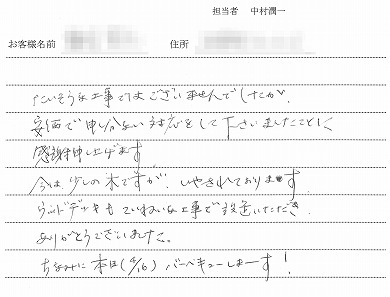 担当者 中村潤一
お客様名前 住所
たいそうな工事ではございませんでしたが、
安価で申し分ない対応をして下さいましたことに
感謝申し上げます
今は少しの木ですが、いやされております
ウッドデッキもていねいな工事で設置いただき、
ありがとうございました。
ちなみに本日(4/16)バーベキューしまーす!